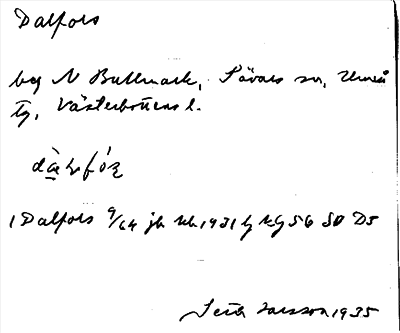 Dalfors
beg N Bullmark, Sävars sn, Umeå
tg, Västerbottens l.
1 Dalfors 9/64 jb kb 1931 hj kg 56 SO D5
Larsson 1935